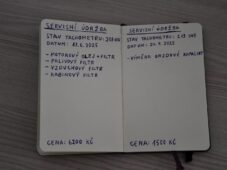 SERVISNÍ ÚDRŽBA
STAV TACHOMETRU:
DATUM: 2025
- MOTOROVÝ OLEJ + FILTR
- PALIVOVÝ FILTR
- VZDUCHOVÝ FILTR
- KABINOVÝ FILTR
CENA: 6200 KČ
SERVISNÍ ÚDRŽBA
STAV TACHOMETRU:
DATUM: 2025
- VÝMĚNA KAPALINY
CENA: 1500 KČ